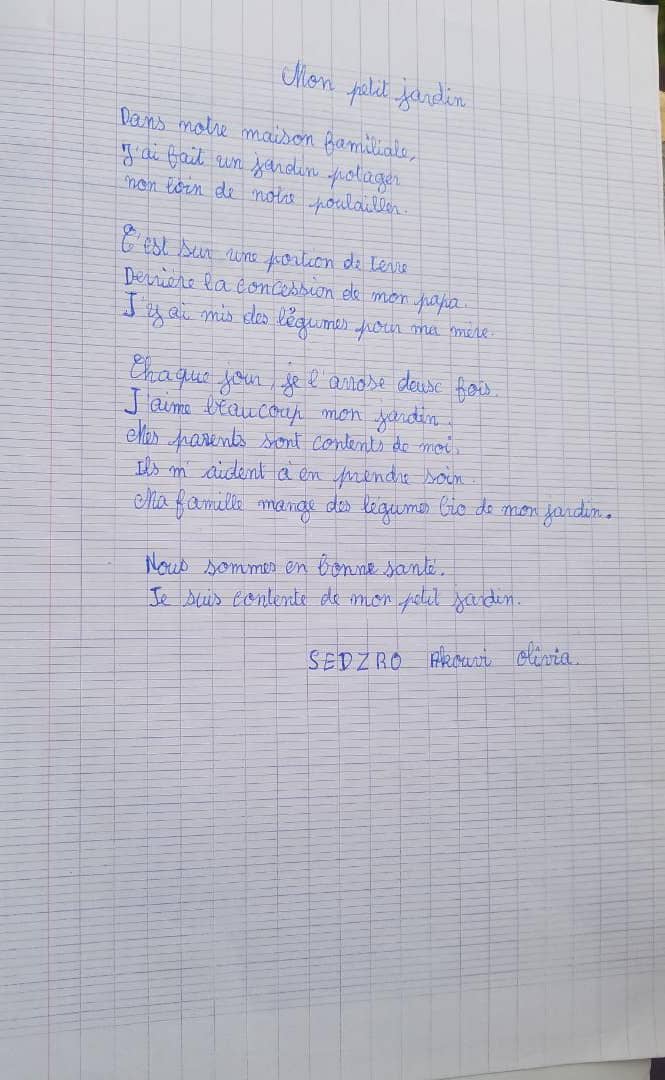 Mon petit jardin
Dans notre maison familiale,
J'ai fait un jardin potager
non loin de notre poulailler.
C'est sur une portion de terre
Derrière la concession de mon papa.
J'y ai mis des légumes pour ma mère.
Chaque jour, je l'arrose deux fois.
J'aime beaucoup mon jardin.
Mes parents sont contents de moi.
Ils m'aident à en prendre soin.
Ma famille mange des légumes bio de mon jardin.
Nous sommes en bonne santé.
Je suis contente de mon petit jardin.
SEDZRO Akouvi Olivia.